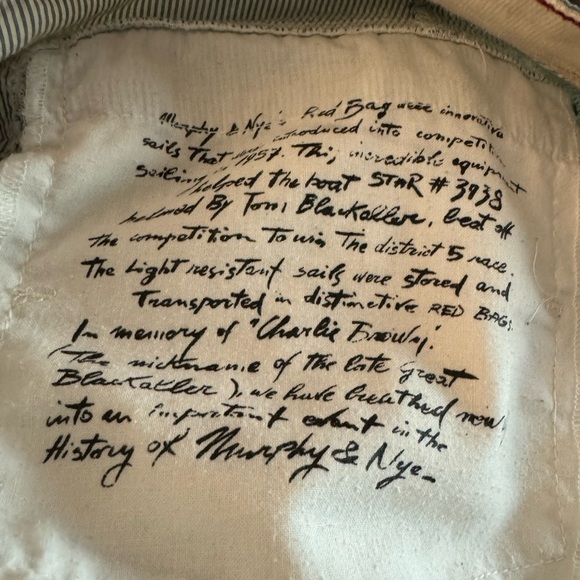 Murphy & Nye's Red Bag were innovative
sails That introduced into competitive
sailing 1957. This incredible equipment
helped the boat STAR # 3938
helmed By Tom Blackaller, beat off
the competition To win The district 5 race.
The Light resistant sails were stored and
Transported in distinctive RED BAGS.
In memory of "Charlie Brown",
(The nickname of the late great
Blackaller), we have breathed new
into an important event in the
History of Murphy & Nye-